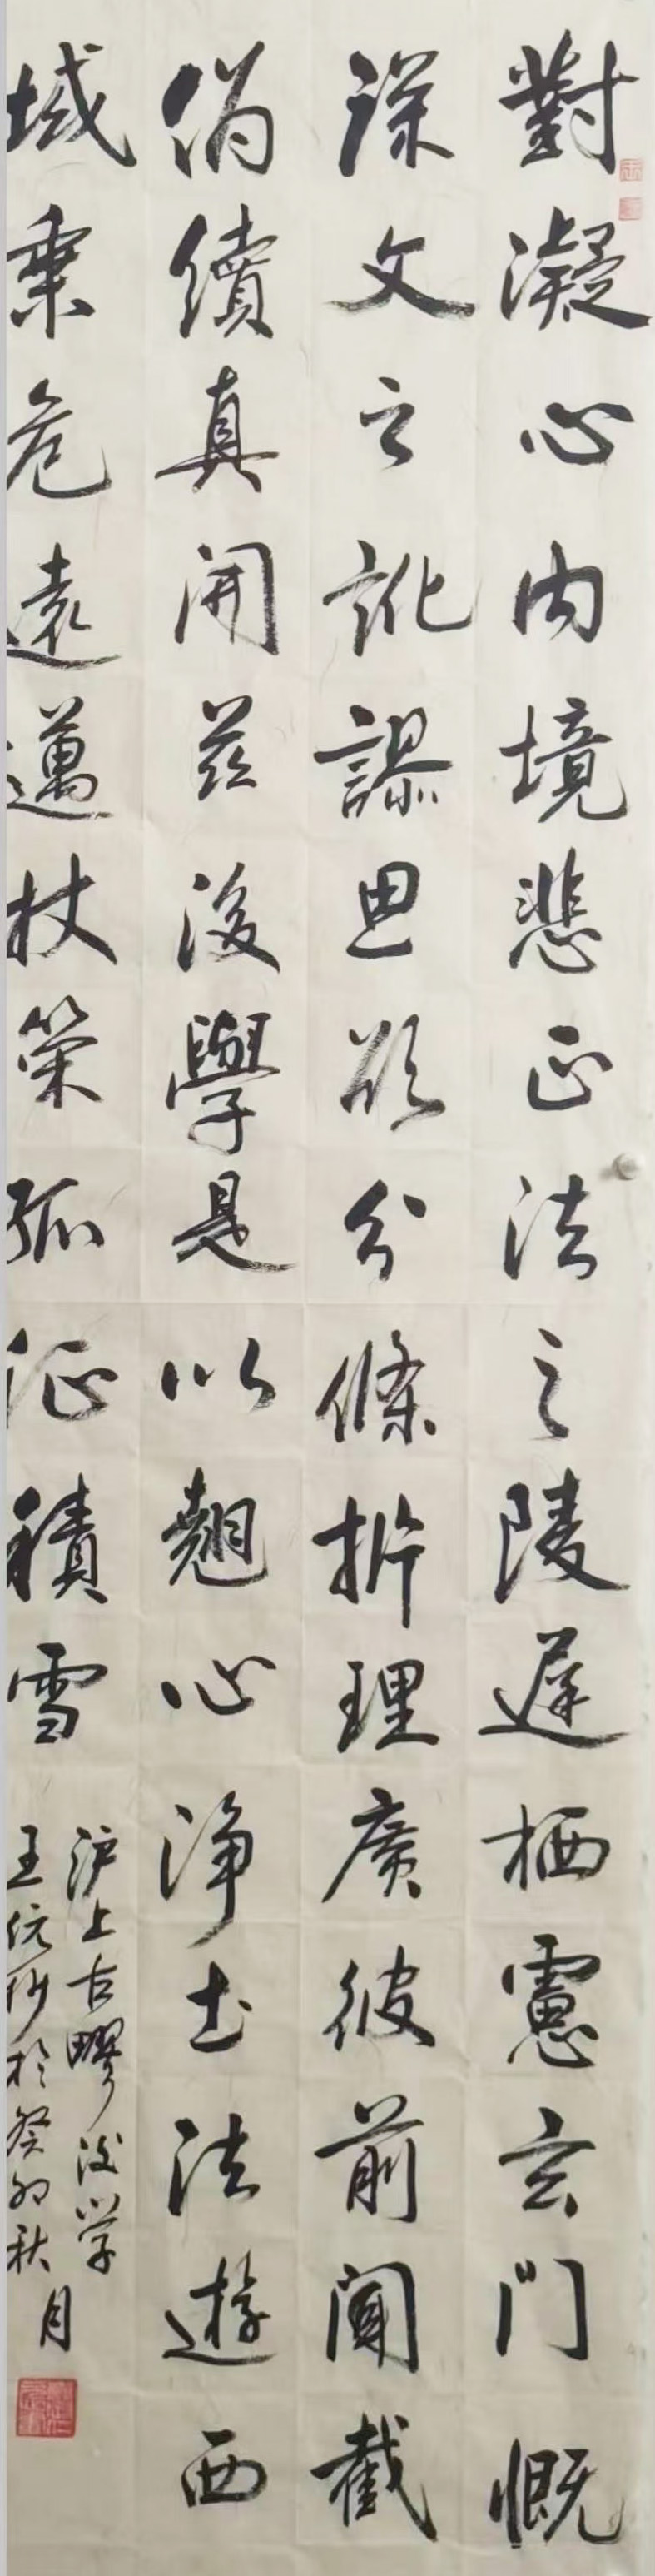 對凝心内境悲正法之陵遲栖慮玄門慨
深文之訛謬思欲分條析理廣彼前聞截
偽續真開茲後學是以翹心淨土法遊西
域乘危遠邁杖策孤征積雪
沪上古疁後学
王伉抄於癸卯秋月